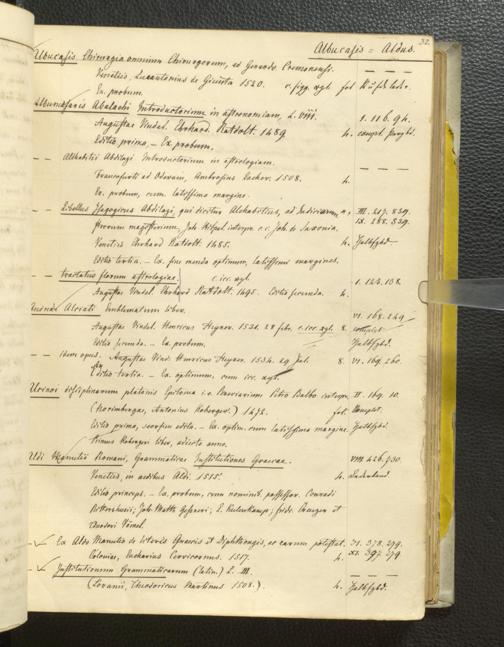 32.
Albucasis = Aldus.
Albucasis Chirurgia omnium Chirurgorum, ex Gerardo Cremonensi.
Venetiis, Lucantonius de Giunta 1520. c. figg. xyl. fol
Ex. probum.
Albumasaris Abalachi Introductorium in astronomiam, L. VIII. 1. 116. 94.
Augustae Vindel. Erhard. Ratdolt. 1489 4. compl. Prghd.
Editio prima. – Ex. probum.
– – Alchabitii Abdilazi Introductorium in astrologiam.
Francofurti ad Oderam, Ambrosius Lacher. 1508. 4.
Ex. probum, cum latissimo margine.
– – Libellus Isagogicus Abdilazi, qui dicitur Alchabitius, ad III. 217. 839.
IX. 288. 839.
Joh. Hispal. interpr. c. c. Joh. de Saxonia.
Venetiis Erhard Ratdolt. 1485. 4. Halbfzbd.
Editio tertia. – Ex. fine mundo optimum, latissimi margines.
– – tractatus florum astrologiae. c. icc. xyl. 1. 124. 108.
Augustae Vindel. Erhard Ratdolt. 1495. Editio secunda. 4.
Andreae Alciati Emblematum liber. VI. 168. 249.
Augustae Vindel. Henricus Steyner. 1531. 28 febr. c. icc. xyl. 8. complet.
Editio secunda. – Ex. probum. Halbfzbd.
– – idem opus. Augustae Vind. Henricus Steyner. 1534. 29 Jul. 8. VI. 169. 260.
Editio tertia. – Ex. optimum, cum icc. xyl.
Alcinoi disciplinarum platonis Epitoma i. e. Breviarium Petro Balbo interpr. II. 169. 10.
(Norimbergae, Antonius Koberger.) 1472. fol. complt.
Editio prima, seorsim edita. – Ex. optim. cum latissimo margine. Halbfzbd.
Primus Kobergeri liber, adiecto anno.
Aldi Manutii Romani, Grammaticae Institutiones Graecae. VIII 426. 930.
Venetiis, in aedibus Aldi. 1515. 4. Lederband.
Editio princeps. – Ex. probum, cum nominib. possessor. Conradi
Joh. Matth. Gesneri; L. Kulenkamp; Fride. Creuzer et
Theodori Vömel.
– Ex Aldo Manutio de literis Graecis et Diphthongis, et earum potestat. VI. 378. 279.
Coloniae, Eucharius Cervicornus. 1517. 4. XI. 397. 279
– Institutionum Grammaticarum (latin.) L. III.
(Lovanii, Theodoricus Martinus 1508.) 4. Halbfzbd.